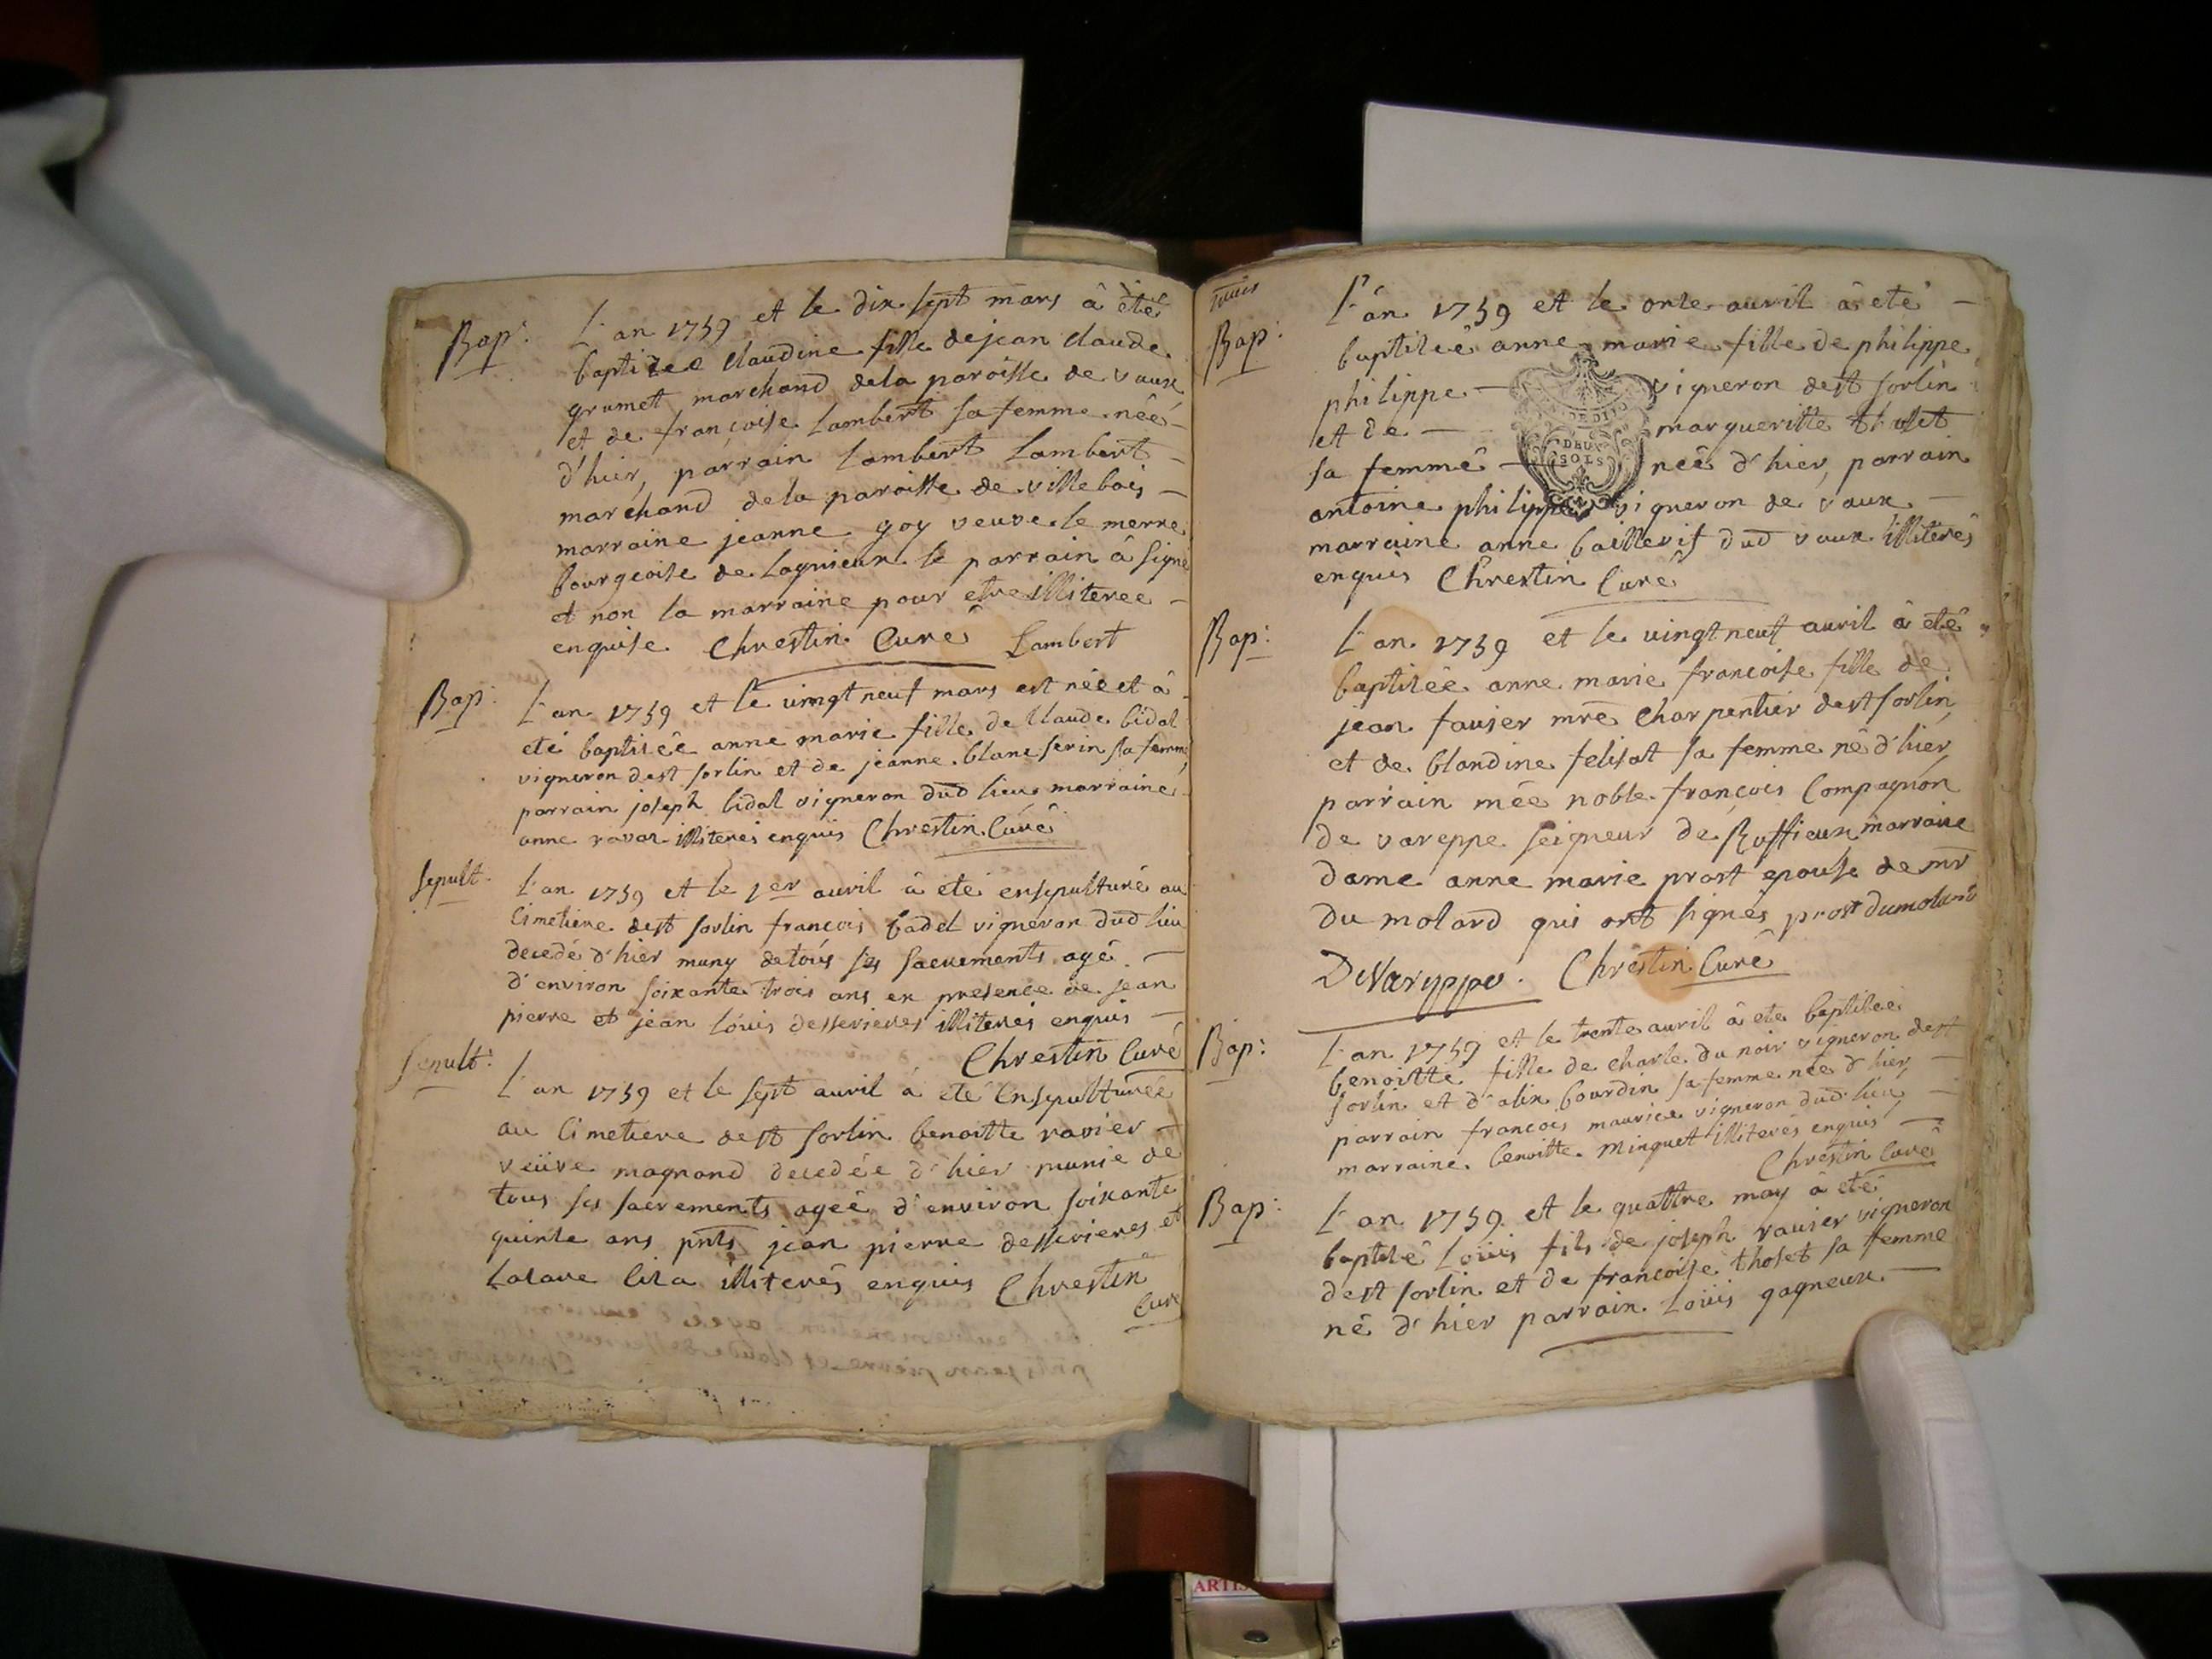 Bap:
L'an 1759 et le dix sept mars â êté
baptizee Claudine fille de jean claude
grumet marchand de la paroisse de vaux
et de françoise Lambert sa femme née
d'hier, parrain Lambert Lambert
marchand de la paroisse de villebois
marraine jeanne goy veuve le merre
bourgeoise de Lagnieux le parrain â signé
et non la marraine pour etre illiteree
enquise Chrestin Curé Lambert
Bap:
L'an 1759 et le vingt neuf mars est née et â
eté baptisêe anne marie fille de Claude bidal
vigneron de st sorlin et de jeanne blanc serin sa femme
parrain joseph bidal vigneron dud lieu marraine
anne ravar illiterês enquis Chrestin Curé
Sepult:
L'an 1759 et le 1er avril â eté ensepulturé au
Cimetiere de st sorlin françois badel vigneron dud lieu
decedé d'hier muny de tous ses sacrements agé
d'environ soixante trois ans en presence de jean
pierre et jean Louis desserieres illiterés enquis
Chrestin Curé
Sepult:
L'an 1759 et le sept avril â eté Ensepulturée
au Cimetiere de st sorlin benoitte ravier
veuve magnand decedée d'hier munie de
tous ses sacrements ageé d'environ soixante
quinze ans pnts jean pierre desserieres et
Lazare liza illiterés enquis Chrestin
Curé
Bap:
L'an 1759 et le onze avril â eté
baptiseê anne marie fille de philippe
philippe vigneron de st sorlin
et de margueritte thoset
sa femme neê d'hier, parrain
DEUX
SOLS
antoine philippe vigneron de vaux
marraine anne baillevif dud vaux illiterés
enquis Chrestin Curé
Bap:
L'an 1759 et le vingt neuf avril â eté
baptiseê anne marie françoise fille de
jean favier mre Charpentier de st sorlin
et de blandine felisat sa femme né d'hier
parrain noble françois Compagnon
de vareppe seigneur de Ruffieux marraine
Dame anne marie prost epouse de mr
Du molard qui ont signés prost dumolard
DeVareppe. Chrestin Curé
Bap:
L'an 1759 et le trente avril â ete baptisee
benoitte fille de charle du noir vigneron de st
sorlin et d'alix bourdin sa femme née d'hier
parrain françois maurice vigneron dud lieu
marraine benoitte Minguet illiterés enquis
Chrestin Curé
Bap:
L'an 1759 et le quattre may â eté
baptisé Loüis fils de joseph ravier vigneron
de st sorlin et de françoise thoset sa femme
né d'hier parrain Loüis gagneux
ARTI